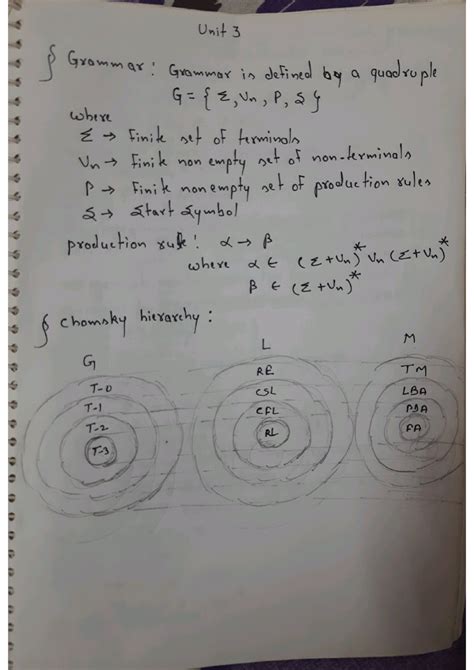 Unit 3
§ Grammar: Grammar is defined by a quadruple
G = { Σ, Vn, P, S }
where
Σ → Finite set of terminals
Vn → Finite non empty set of non-terminals
P → Finite nonempty set of production rules
S → Start Symbol
production rule: α → β
where α ∈ (Σ+Vn)* Vn (Σ+Vn)*
β ∈ (Σ+Vn)*
§ Chomsky hierarchy:
G L M
T-0 RE TM
T-1 CSL LBA
T-2 CFL PDA
T-3 RL FA